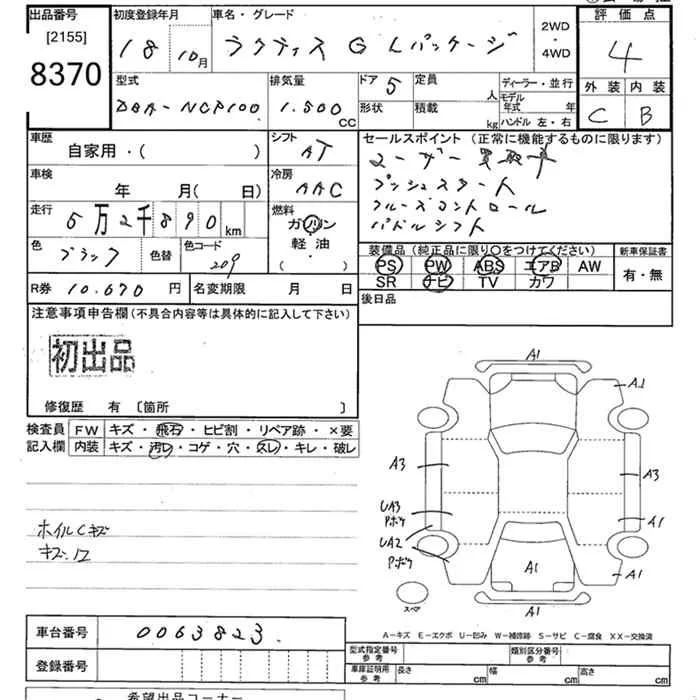 出品番号 初度登録年月 車名・グレード 2WD・4WD 評価点
[2155]
8370
18 10月 ラクティス G Lパッケージ 4
型式 排気量 ドア 5 定員 人 ディーラー・並行 外装 内装
DBA-NCP100 1.500 CC 形状 積載 kg モデル年式 年 ハンドル 左・右 C B
車歴 自家用・( ) シフト AT
セールスポイント (正常に機能するものに限ります)
ユーザー買取車
プッシュスタート
クルーズコントロール
パドルシフト
車検 年 月( 日) 冷房 AAC
走行 5万2千890km 燃料 ガソリン 軽油 ・( )
色 ブラック 色替 色コード 209
装備品 (純正品に限り○をつけてください) 新車保証書
PS PW ABS エアB AW 有・無
SR ナビ TV カワ
R券 10.670 円 名変期限 月 日
後日品
注意事項申告欄(不具合内容等は具体的に記入して下さい)
初出品
修復歴 有 〔箇所 〕
検査員 FW キズ・飛石・ヒビ割・リペア跡・×要
記入欄 内装 キズ・汚レ・コゲ・穴・スレ・キレ・破レ
ホイルCキズ
A1
A1
A3
A3
UA3
Pボケ
A1
UA2
Pボケ
A1
A1
スペア
A1
A-キズ E-エクボ U-凹み W-補修跡 S-サビ C-腐食 XX-交換済
車台番号 0063823
型式指定番号 参考 類別区分番号 参考
登録番号
車庫証明用 参考 長さ cm 幅 cm 高さ cm
希望出品コーナー